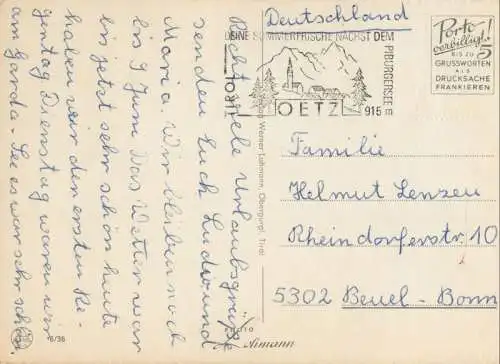 Deutschland
DEINE SOMMERFRISCHE NÄCHST DEM
PIBURGERSEE
OETZ
915 m
Porto
verbilligt!
BIS ZU 5
GRUSSWORTEN
ALS
DRUCKSACHE
FRANKIEREN
Recht viele Urlaubsgrüße
senden Euch Ludwig und
Maria. Wir bleiben noch
bis 9 Juni Das Wetter war
bis jetzt sehr schön heute
haben wir den ersten Re-
gentag Dienstag waren wir
am Garda-See es war sehr schön
Familie
Helmut Lenzen
Rheindorferstr. 10
5302 Beuel-Bonn
Werner Lohmann, Obergurgl, Tirol
PHOTO
Aimann
6/36